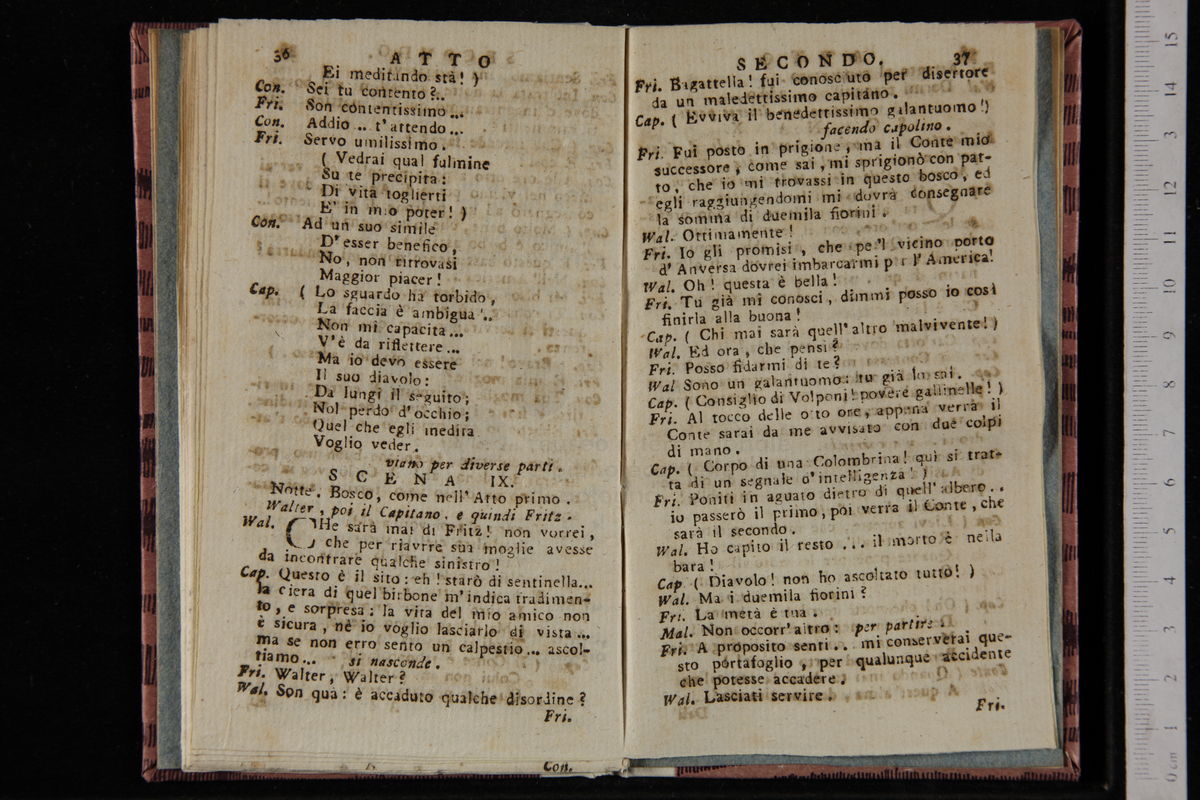 36 ATTO
Ei meditando stà! )
Con. Sei tu contento?..
Fri. Son contentissimo...
Con. Addio .. t'attendo...
Fri. Servo umilissimo.
( Vedrai qual fulmine
Su te precipita:
Di vita toglierti
E' in mio poter! )
Con. Ad un suo simile
D'esser benefico,
No, non ritrovasi
Maggior piacer!
Cap. ( Lo sguardo ha torbido,
La faccia è ambigua..
Non mi capacita...
V'è da riflettere...
Ma io devo essere
Il suo diavolo:
Da lungi il seguito;
Nol perdo d'occhio;
Quel che egli medita
Voglio veder.
viano per diverse parti.
SCENA IX.
Notte. Bosco, come nell'Atto primo.
Walter, poi il Capitano, e quindi Fritz.
Wal. CHe sarà mai di Fritz! non vorrei,
che per riavrre sua moglie avesse
da incontrare qualche sinistro!
Cap. Questo è il sito: eh! starò di sentinella...
la ciera di quel birbone m'indica tradimen-
to, e sorpresa: la vita del mio amico non
è sicura, nè io voglio lasciarlo di vista...
ma se non erro sento un calpestio... ascol-
tiamo... si nasconde.
Fri. Walter, Walter?
Wal. Son quà: è accaduto qualche disordine?
Fri.
Con.
SECONDO. 37
Fri. Bagattella! fui conosciuto per disertore
da un maledettissimo capitano.
Cap. ( Evviva il benedettissimo galantuomo!)
facendo capolino.
Fri. Fui posto in prigione, ma il Conte mio
successore, come sai, mi sprigionò con pat-
to, che io mi trovassi in questo bosco, ed
egli raggiungendomi mi dovrà consegnare
la somma di duemila fiorini.
Wal. Ottimamente!
Fri. Io gli promisi, che pe'l vicino porto
d'Anversa dovrei imbarcarmi p r l'America!
Wal. Oh! questa è bella!
Fri. Tu già mi conosci, dimmi posso io così
finirla alla buona!
Cap. ( Chi mai sarà quell'altro malvivente!)
Wal. Ed ora, che pensi?
Fri. Posso fidarmi di te?
Wal Sono un galantuomo: tu già lo sai.
Cap. ( Consiglio di Volponi! povere gallinelle! )
Fri. Al tocco delle otto ore, appena verrà il
Conte sarai da me avvisato con due colpi
di mano.
Cap. ( Corpo di una Colombrina! qui si trat-
ta di un segnale o'intelligenza! )
Fri. Poniti in aguato dietro di quell'albero..
io passerò il primo, poi verrà il Conte, che
sarà il secondo.
Wal. Ho capito il resto ... il morto è nella
bara!
Cap ( Diavolo! non ho ascoltato tutto! )
Wal. Ma i duemila fiorini?
Fri. La metà è tua.
Mal. Non occorr'altro: per partire.
Fri. A proposito senti... mi conserverai que-
sto portafoglio, per qualunque accidente
che potesse accadere.
Wal. Lasciati servire.
Fri.
0 cm 1 2 3 4 5 6 7 8 9 10 11 12 13 14 15